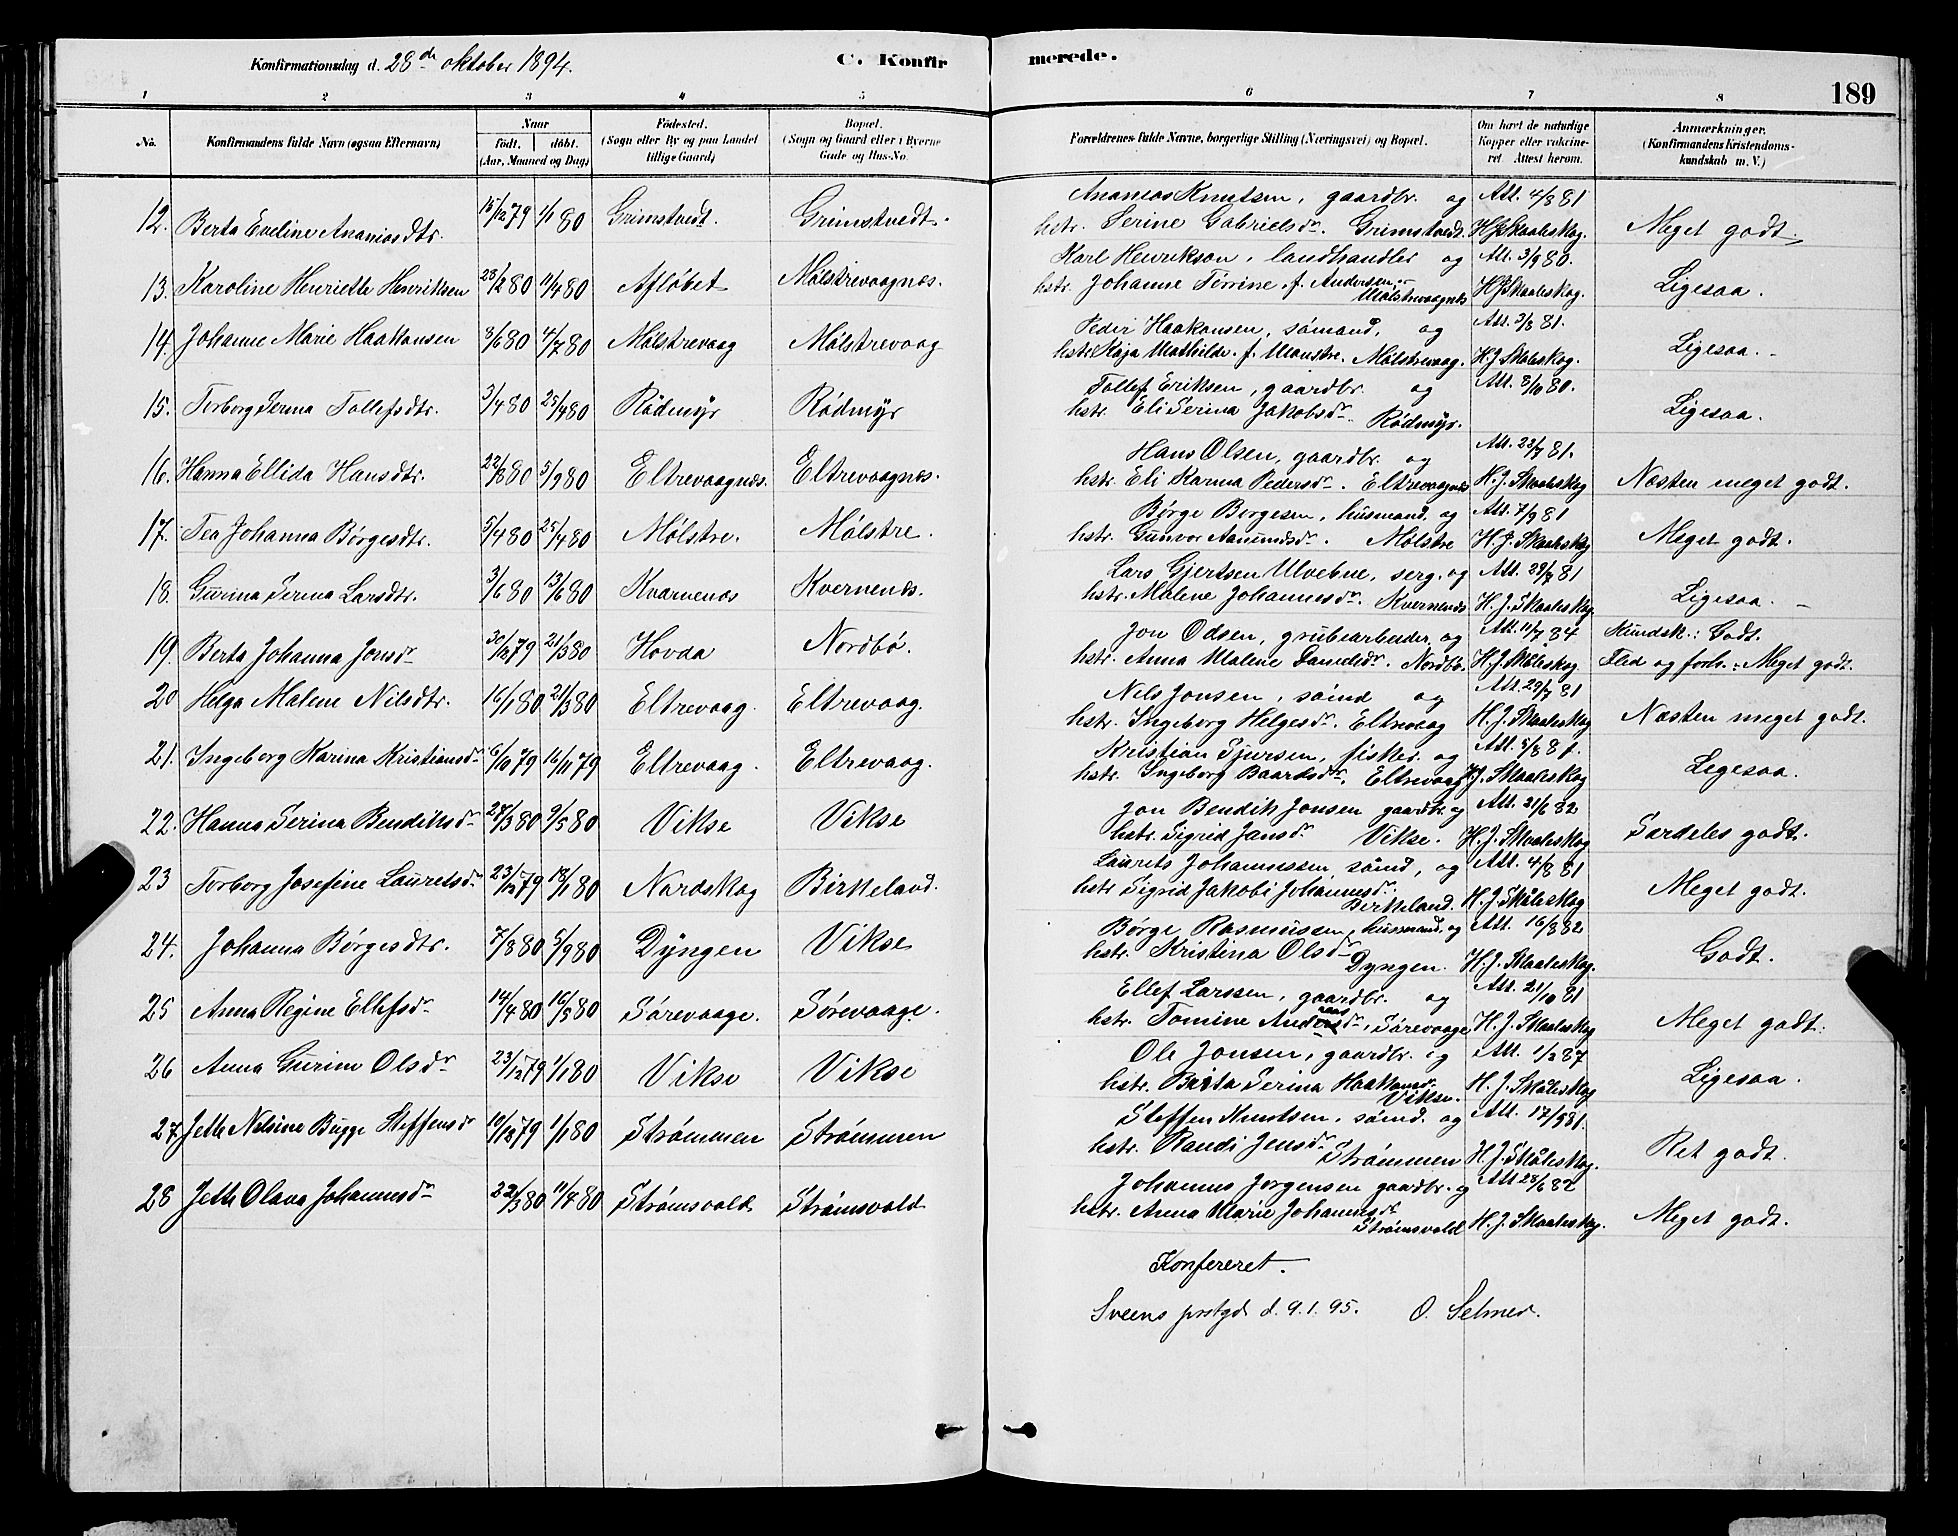 Konfirmationsdag d. 28de oktober 1894. C. Konfirmerede. 189
1 2 3 4 5 6 7 8
No. Konfirmandens fulde Navn (ogsaa Efternavn) Naar født, døbt. (Aar, Maaned og Dag) Fødested. (Sogn eller By og paa Landet tillige Gaard) Bopæl. (Sogn og Gaard eller i Byerne Gade og Hus-No. Forældrenes fulde Navne, borgerlige Stilling (Næringsvei) og Bopæl. Om havt de naturlige Kopper eller vakcineret. Attest herom. Anmærkninger. (Konfirmandens Kristendomskundskab m. V.)
12. Berta Eveline Ananiasdtr. 15/12 79 1/1 80 Grimstvedt. Grimstvedt. Ananias Knutsen, gaardbr. og Att. 4/8 81
hstr. Serine Gabrielsdr. Grimstvedt. H J Skaaleskog. Meget godt.
13. Karoline Henriette Henriksen 28/2 80 11/4 80 Afløbet Mølstrevaagnes. Karl Henrikson, landhandler og Att. 3/9 80.
hstr. Johanne Torrine f. Andersen, Mølstrevaagnes H J Skaaleskog. Ligesaa.
14. Johanne Marie Haakonsen 8/6 80 4/7 80 Mølstrevaag Mølstrevaag Peder Haakonsen, sømand, og Att. 3/8 81.
hstr. Kaja Mathilde f. Monstre. Mølstrevaag. H. J Skaaleskog. Ligesaa.
15. Torborg Serina Tollefsdtr. 3/4 80 25/4 80 Rødmyr Rødmyr Tollef Eriksen, gaardbr. og Att. 8/10 80.
hstr. Eli Serina Jakobsdr. Rødmyr. Ligesaa.
16. Hanna Ellida Hansdtr. 22/8 80 5/9 80 Eltrevaagnes. Eltrevaagnes. Hans Olsen, gaardbr. og Att. 23/7 81.
hstr. Eli Karina Pedersdr. Eltrevaagnes H. J. Skaaleskog Næsten meget godt.
17. Tea Johanna Børgesdtr. 5/4 80 25/4 80 Mølstre. Mølstre. Børge Børgesen, husmand. og Att. 7/9 81
hstr. Gunvor Aamundsdr. Mølstre H. J. Skaaleskog Meget godt.
18. Gurina Serina Larsdtr. 3/6 80 13/6 80 Kvarnenes Kvernenes. Lars Gjertsen Ulvebne, serg. og Att. 29/7 81
hstr. Malene Johannesdr. Kvernenes H. J. Skaaleskog. Ligesaa.
19. Berta Johanna Jonsdr 30/12 79 21/3 80 Hovda Nordbø. Jon Odsen, grubearbeider og Att. 11/7 84 Kundsk.: Godt.
hstr. Anna Malene Danielsdr. Nordbø. H. J. Skåleskog. Flid og forh.: Meget godt.
20 Helga Malene Nilsdtr. 16/1 80 21/3 80 Eltrevaag. Eltrevaag. Nils Jonsen, sømd og Att. 29/7 81
hstr. Ingeborg Helgesdr. Eltrevaag H. J. Skaaleskog Næsten meget godt.
21. Ingeborg Karina Kristiansdr 6/10 79 16/11 79 Eltrevaag. Eltrevaag. Kristian Sjursen, fisker. og Att. 5/8 81.
hstr. Ingeborg Baardsdr. Eltrevaag H. J. Skaaleskog Ligesaa.
22. Hanna Serina Bendiksdr 27/3 80 9/5 80 Vikse Vikse Jon Bendik Jonsen gaardbr. og Att. 21/6 82
hstr. Sigrid Jansdr Vikse. H. J. Skaaleskog Særdeles godt.
23 Torborg Josefine Lauretsdr 23/12 79 18/1 80 Nordskog Birkeland. Laurets Johannessen sømd, og Att. 4/8 81
hstr Sigrid Jakobi Johannesdr. Birkeland. H. J. Skåleskog Meget godt.
24. Johanna Børgesdtr. 7/8 80 5/9 80 Dyngen Vikse Børge Rasmussen, husmand. og Att. 16/8 82
hstr. Kristina Olsdr Dyngen. H. J. Skaaleskog. Godt.
25 Anna Regine Ellefsdr 14/4 80 16/5 80 Sørevaage. Sørevaage. Ellef Larssen, gaardbr. og Att. 21/10 81
hstr. Tomine Andersdr, Sørevaage H. J. Skaaleskog Meget godt.
26 Anna Gurine Olsdr 23/12 79 1/1 80 Vikse Vikse Ole Jonsen, gaardbr. og Att. 1/2 87
hstr. Brita Serina Haakonsdr. Vikse. H. J. Skåleskog Ligesaa.
27. Jette Nilsine Bugge Steffensdr 10/12 79 1/1 80 Strømmen Strømmen Steffen Knutsen, sømd. og Att. 17/9 81.
hstr. Randi Jensdr Strømmen H. J Skåleskog. Ret godt.
28 Jette Olava Johannesdr 22/3 80 11/4 80 Strømsvold Strømsvold Johannes Jørgensen gaardbr. og Att 28/6 82
hstr. Anna Marie Johannesdr Strømsvold H. J. Skaaleskog. Meget godt.
Konfereret.
Sveens prstgd d. 9.1.95. O. Selmer.